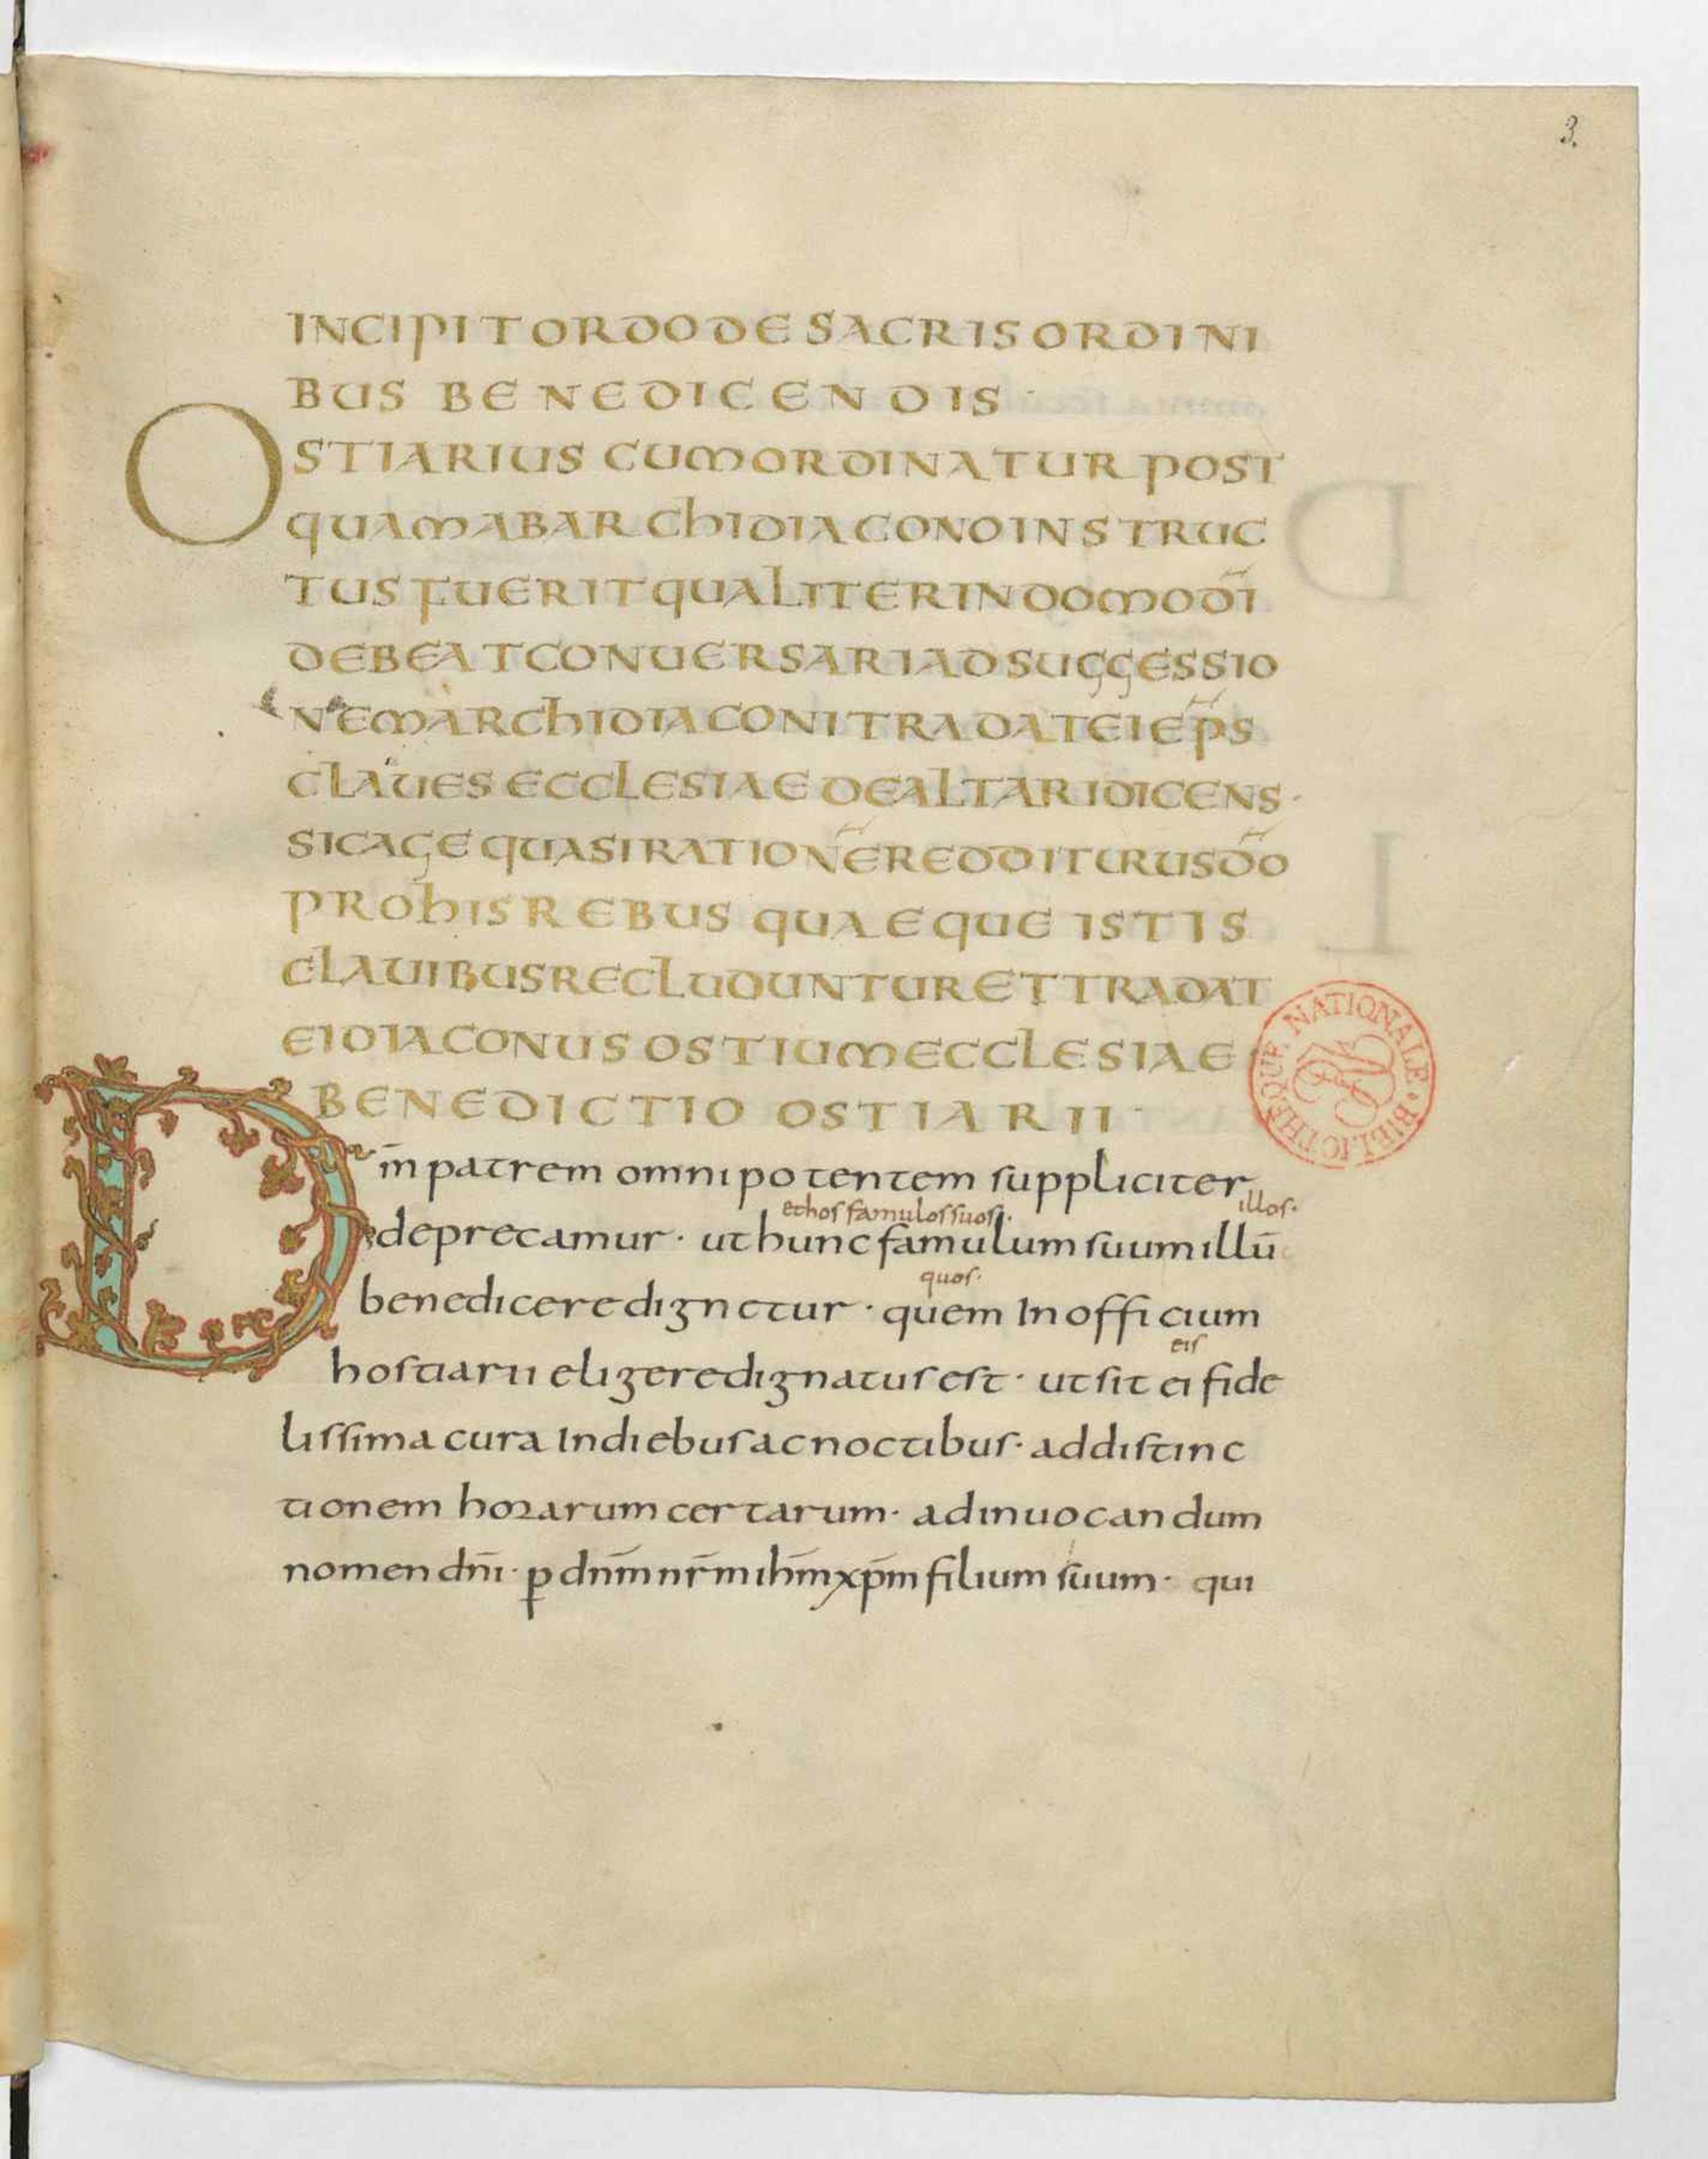 3.
INCIPIT ORDO DE SACRIS ORDINI
BUS BENEDICENDIS ·
OSTIARIUS CUM ORDINATUR POST
QUAM AB ARCHIDIACONO INSTRUC
TUS FUERIT QUALITER IN DOMO DI̅
DEBEAT CONUERSARI AD SUGGESSIO
NEM ARCHIDIACONI TRADAT EI EP̅S
CLAUES ECCLESIAE DE ALTARI DICENS ·
SIC AGE QUASI RATIONE̅ REDDITURUS DO̅
PRO HIS REBUS QUAEQUE ISTIS
CLAUIBUS RECLUDUNTUR ET TRADAT
EI DIACONUS OSTIUM ECCLESIAE
BENEDICTIO OSTIARII ·
Dm̅ patrem omnipotentem suppliciter
et hos famulos suos · illos ·
deprecamur · ut hunc famulum suum illu̅
quos ·
benedicere dignetur · quem In officium
eis
hostiarii eligere dignatus est · ut sit ei fide
lissima cura In diebus ac noctibus · ad distinc
tionem horarum certarum · ad inuocandum
nomen dn̅i · ꝑ dn̅m nr̅m ih̅m xp̅m filium suum · qui
BIBLIOTHEQUE NATIONALE